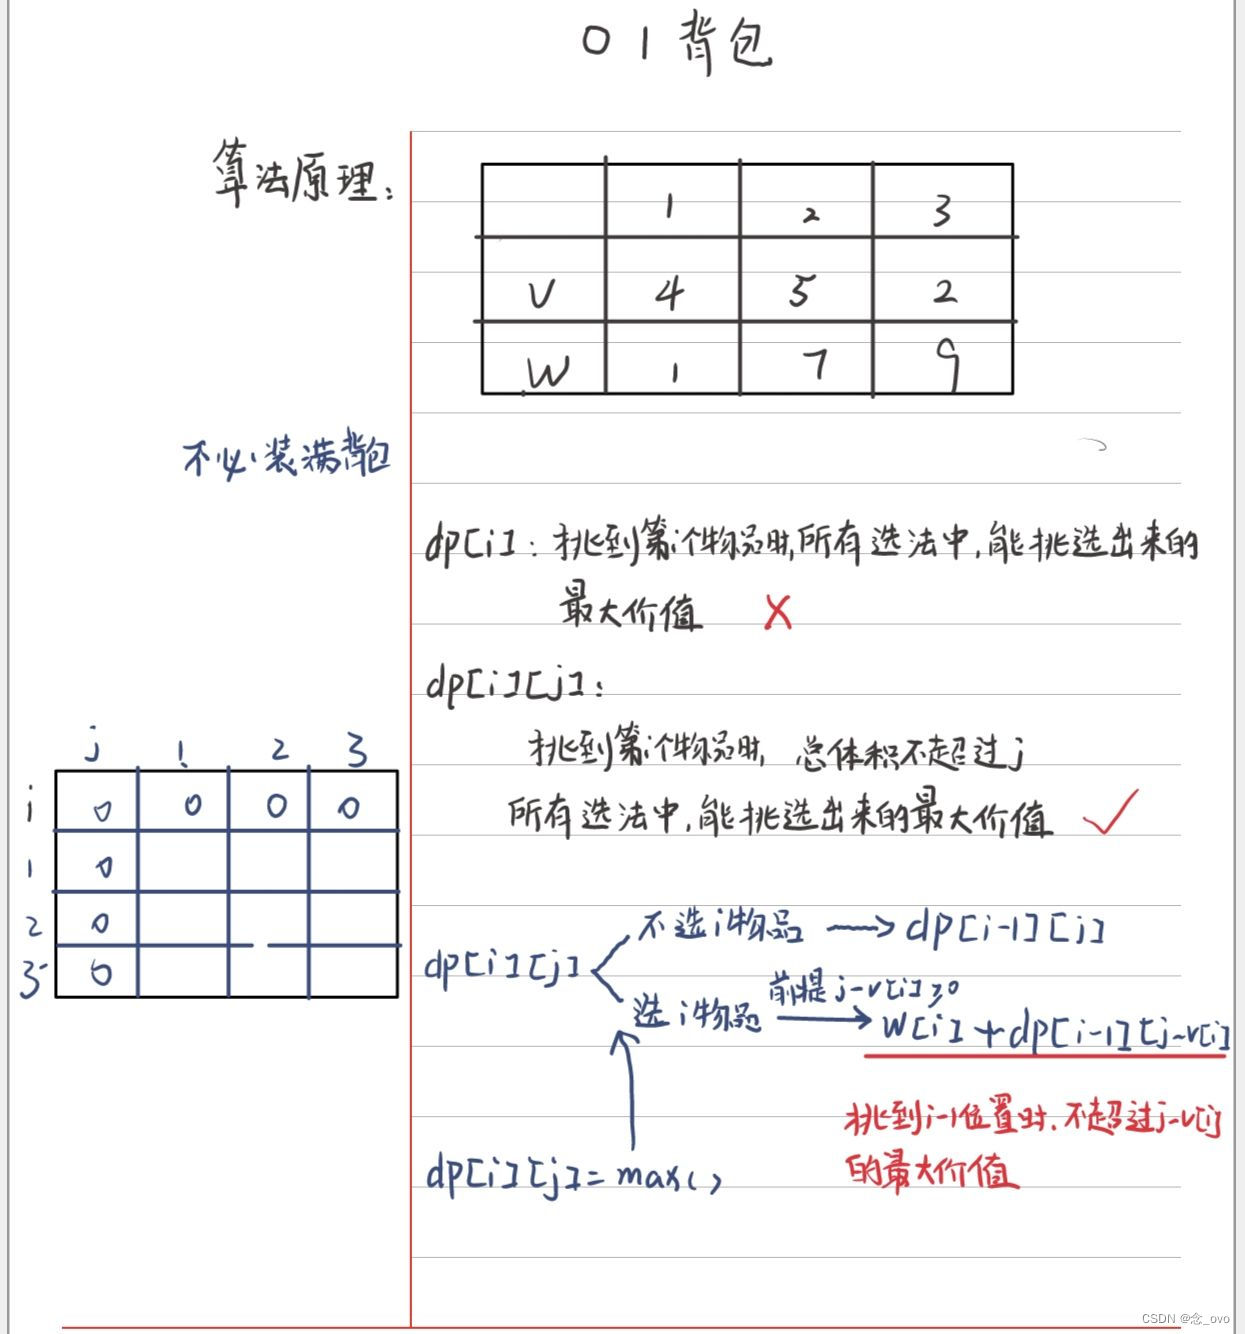 01背包
算法原理:
1 2 3
V 4 5 2
W 1 7 9
不必装满背包
dp[i]: 挑到第i个物品时,所有选法中,能挑选出来的
最大价值 X
dp[i][j]:
挑到第i个物品时, 总体积不超过j
所有选法中,能挑选出来的最大价值 ✓
j 1 2 3
i 0 0 0 0
1 0
2 0
3 0
dp[i][j]
不选i物品 → dp[i-1][j]
选i物品 前提j-v[i]≥0 → w[i]+dp[i-1][j-v[i]
dp[i][j]=max()
挑到i-1位置时.不超过j-v[i]
的最大价值
CSDN @念_ovo